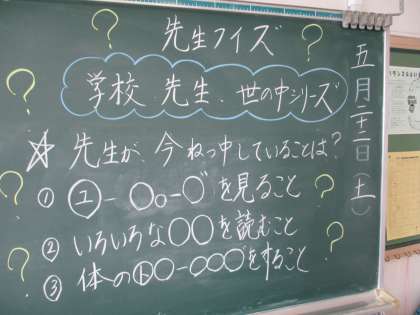 先生クイズ
学校 先生、世の中シリーズ
☆ 先生が、今ねっ中していることは?
① ユ-〇〇-〇゛を見ること
② いろいろな〇〇を読むこと
③ 体のト〇〇-〇〇〇゛をすること
五月二十二日(土)